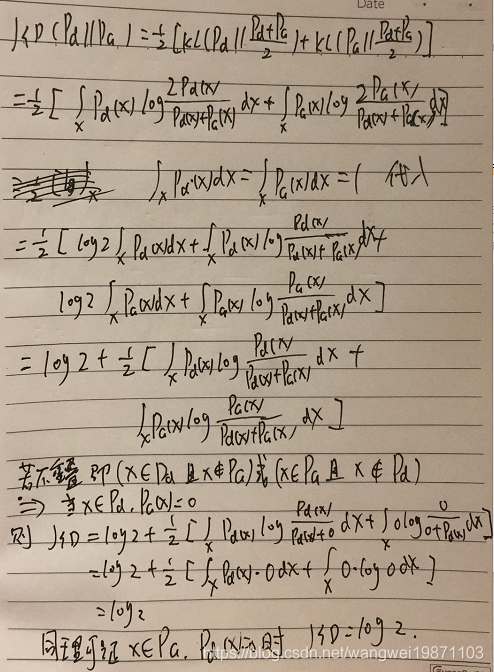 Date
JSD(Pd||Pa) = 1/2 [KL(Pd||(Pd+Pa)/2) + KL(Pa||(Pd+Pa)/2)]
= 1/2 [∫x Pd(x) log 2Pd(x)/(Pd(x)+Pa(x)) dx + ∫x Pa(x) log 2Pa(x)/(Pd(x)+Pa(x)) dx]
∫x Pd(x)dx = ∫x Pa(x)dx = 1 代入
= 1/2 [log2 ∫x Pd(x)dx + ∫x Pd(x) log Pd(x)/(Pd(x)+Pa(x)) dx +
log2 ∫x Pa(x)dx + ∫x Pa(x) log Pa(x)/(Pd(x)+Pa(x)) dx]
= log2 + 1/2 [∫x Pd(x) log Pd(x)/(Pd(x)+Pa(x)) dx +
∫x Pa(x) log Pa(x)/(Pd(x)+Pa(x)) dx]
若不重叠 即(x∈Pd 且 x∉Pa)或(x∈Pa 且 x∉Pd)
=> 当x∈Pd, Pa(x)=0
则 JSD = log2 + 1/2 [∫x Pd(x) log Pd(x)/(Pd(x)+0) dx + ∫x 0 log 0/(0+Pd(x)) dx]
= log2 + 1/2 [∫x Pd(x)·0dx + ∫x 0·log0dx]
= log2
同理可证 x∈Pa, Pd(x)=0时 JSD=log2.
https://blog.csdn.net/wangwei19871103